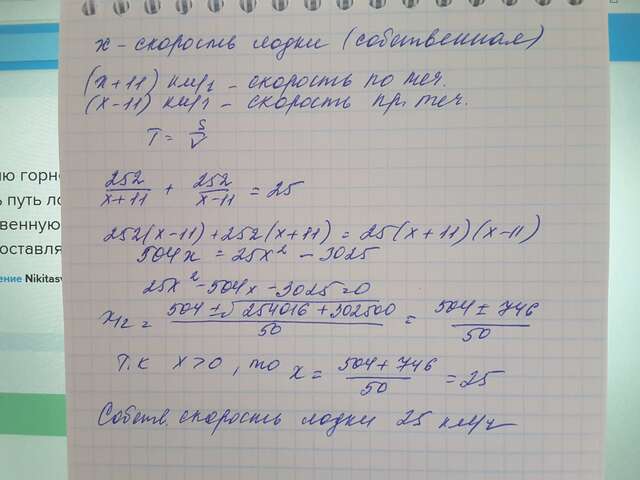 x - скорость лодки (собственная)
(x+11) км/ч - скорость по теч.
(x-11) км/ч - скорость пр. теч.
T = S/V
252/(x+11) + 252/(x-11) = 25
252(x-11)+252(x+11) = 25(x+11)(x-11)
504x = 25x² - 3025
25x² - 504x - 3025 = 0
x₁₂ = (504 ± √(254016 + 302500))/50 = (504 ± 746)/50
Т.к x>0, то x = (504 + 746)/50 = 25
Собств. скорость лодки 25 км/ч
ю горн
ь путь ло
венную
оставля
ение Nikitasv